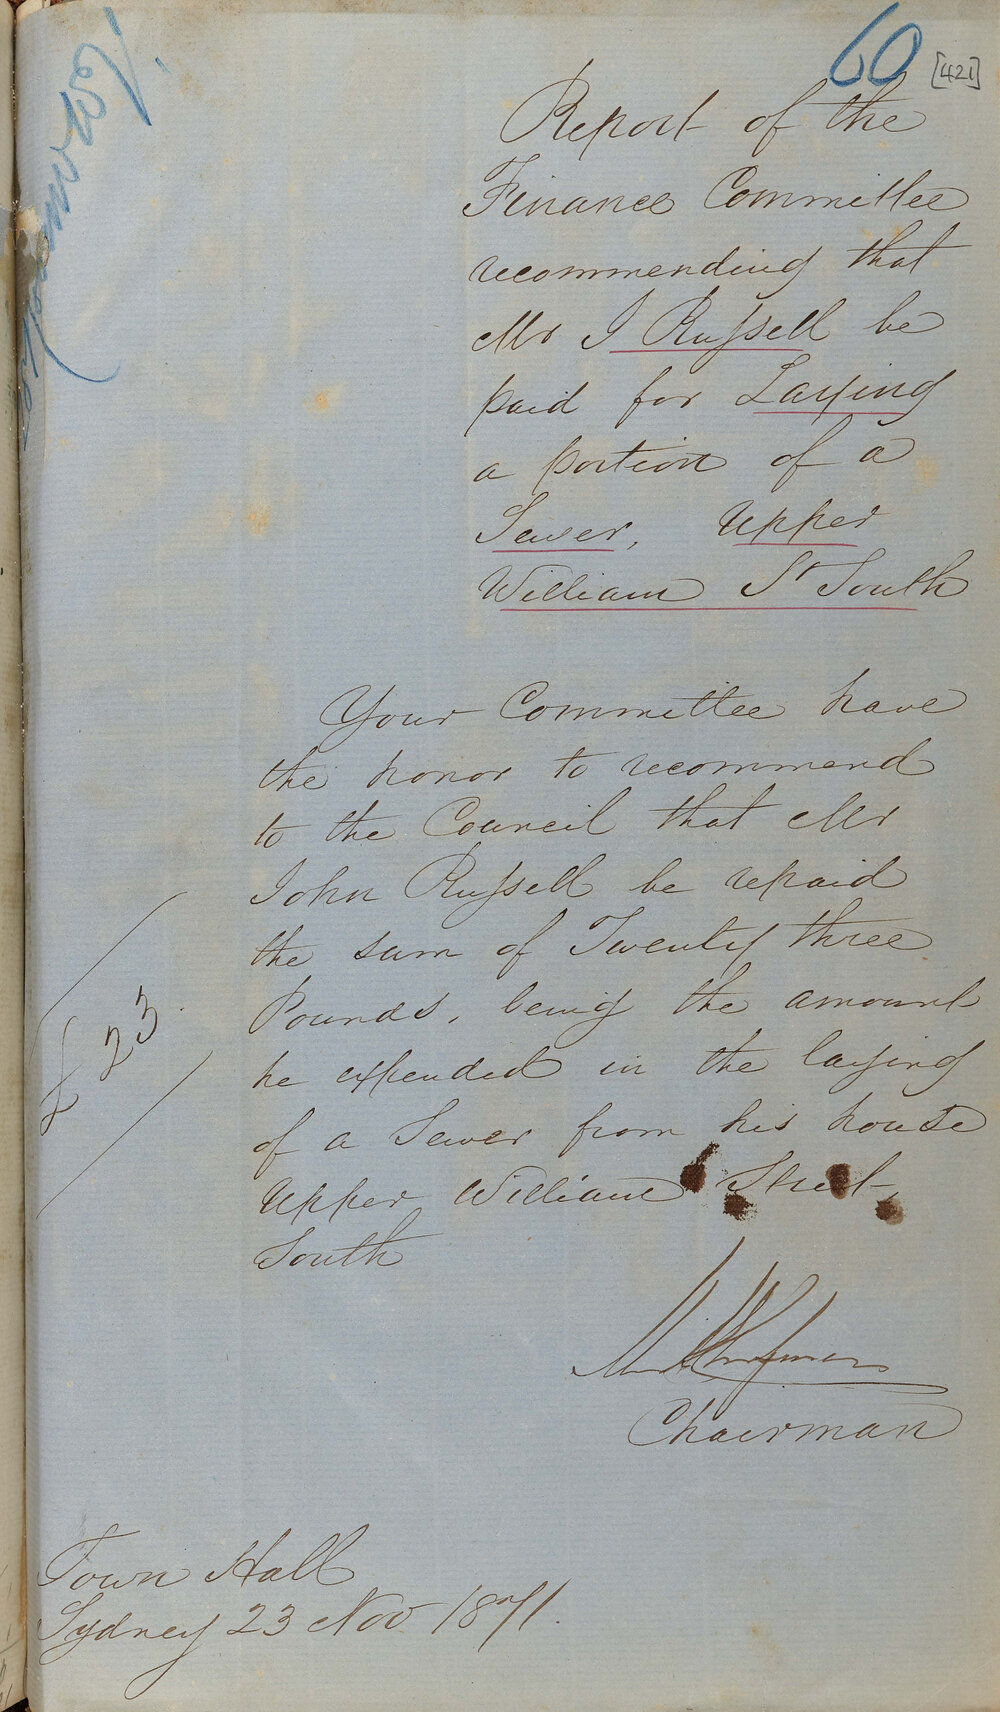 60 [421]
Report of the
Finance Committee
recommending that
Mr J Russell be
paid for Laying
a portion of a
Sewer, Upper
William St South
Your Committee have
the honor to recommend
to the Council that Mr
John Russell be repaid
the sum of Twenty three
Pounds, being the amount
he expended in the laying
of a Sewer from his house
Upper William Street,
South
£23
Chairman
Town Hall
Sydney 23 Nov 1871.